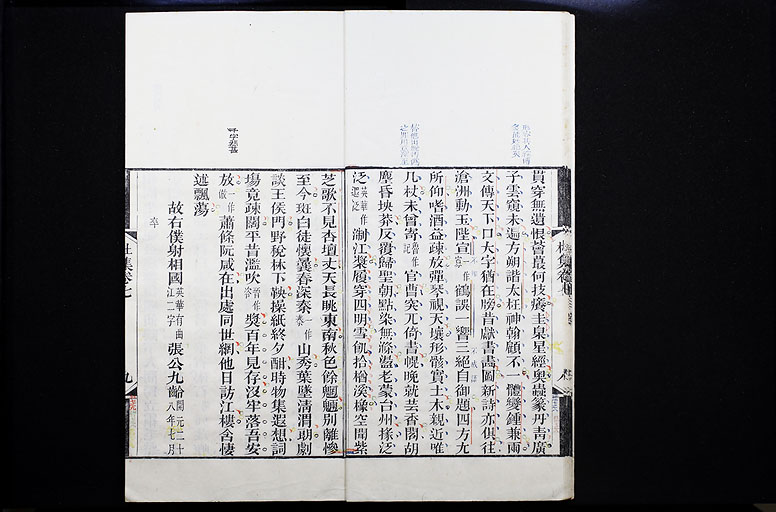 貫穿無遺恨薈蕞何技癢圭臬星經奧蟲篆丹青廣
子雲窺未遍方朔諧太枉神翰顧不一體變鍾兼兩
文傳天下口大字猶在牓昔獻書畫圖新詩亦俱往
滄洲動玉陛宣一作寡鶴誤一響三絕自御題四方尤
所仰嗜酒益疎放彈琴視天壤形骸實土木親近唯
几杖未曾寄官曹突兀倚書幌晚就芸香閣胡
塵昏坱莽反覆歸聖朝點染無滌盪老蒙台州掾泛
泛浙江槳履穿四明雪飢拾楢溪橡空聞紫
芝歌不見杏壇丈天長眺東南秋色餘魍魎別離慘
至今斑白徒懷曩春深秦一作山秀葉墜清渭朗劇
談王侯門野稅林下鞅操紙終夕酣時物集遐想詞
場竟疎闊平昔濫吹獎百年見存沒牢落吾安
放一作蕭條阮咸在出處同世網他日訪江樓含悽
述飄蕩
故右僕射相國英華有曲江二字張公九齡開元二十八年七月
卒
杜集卷七
九